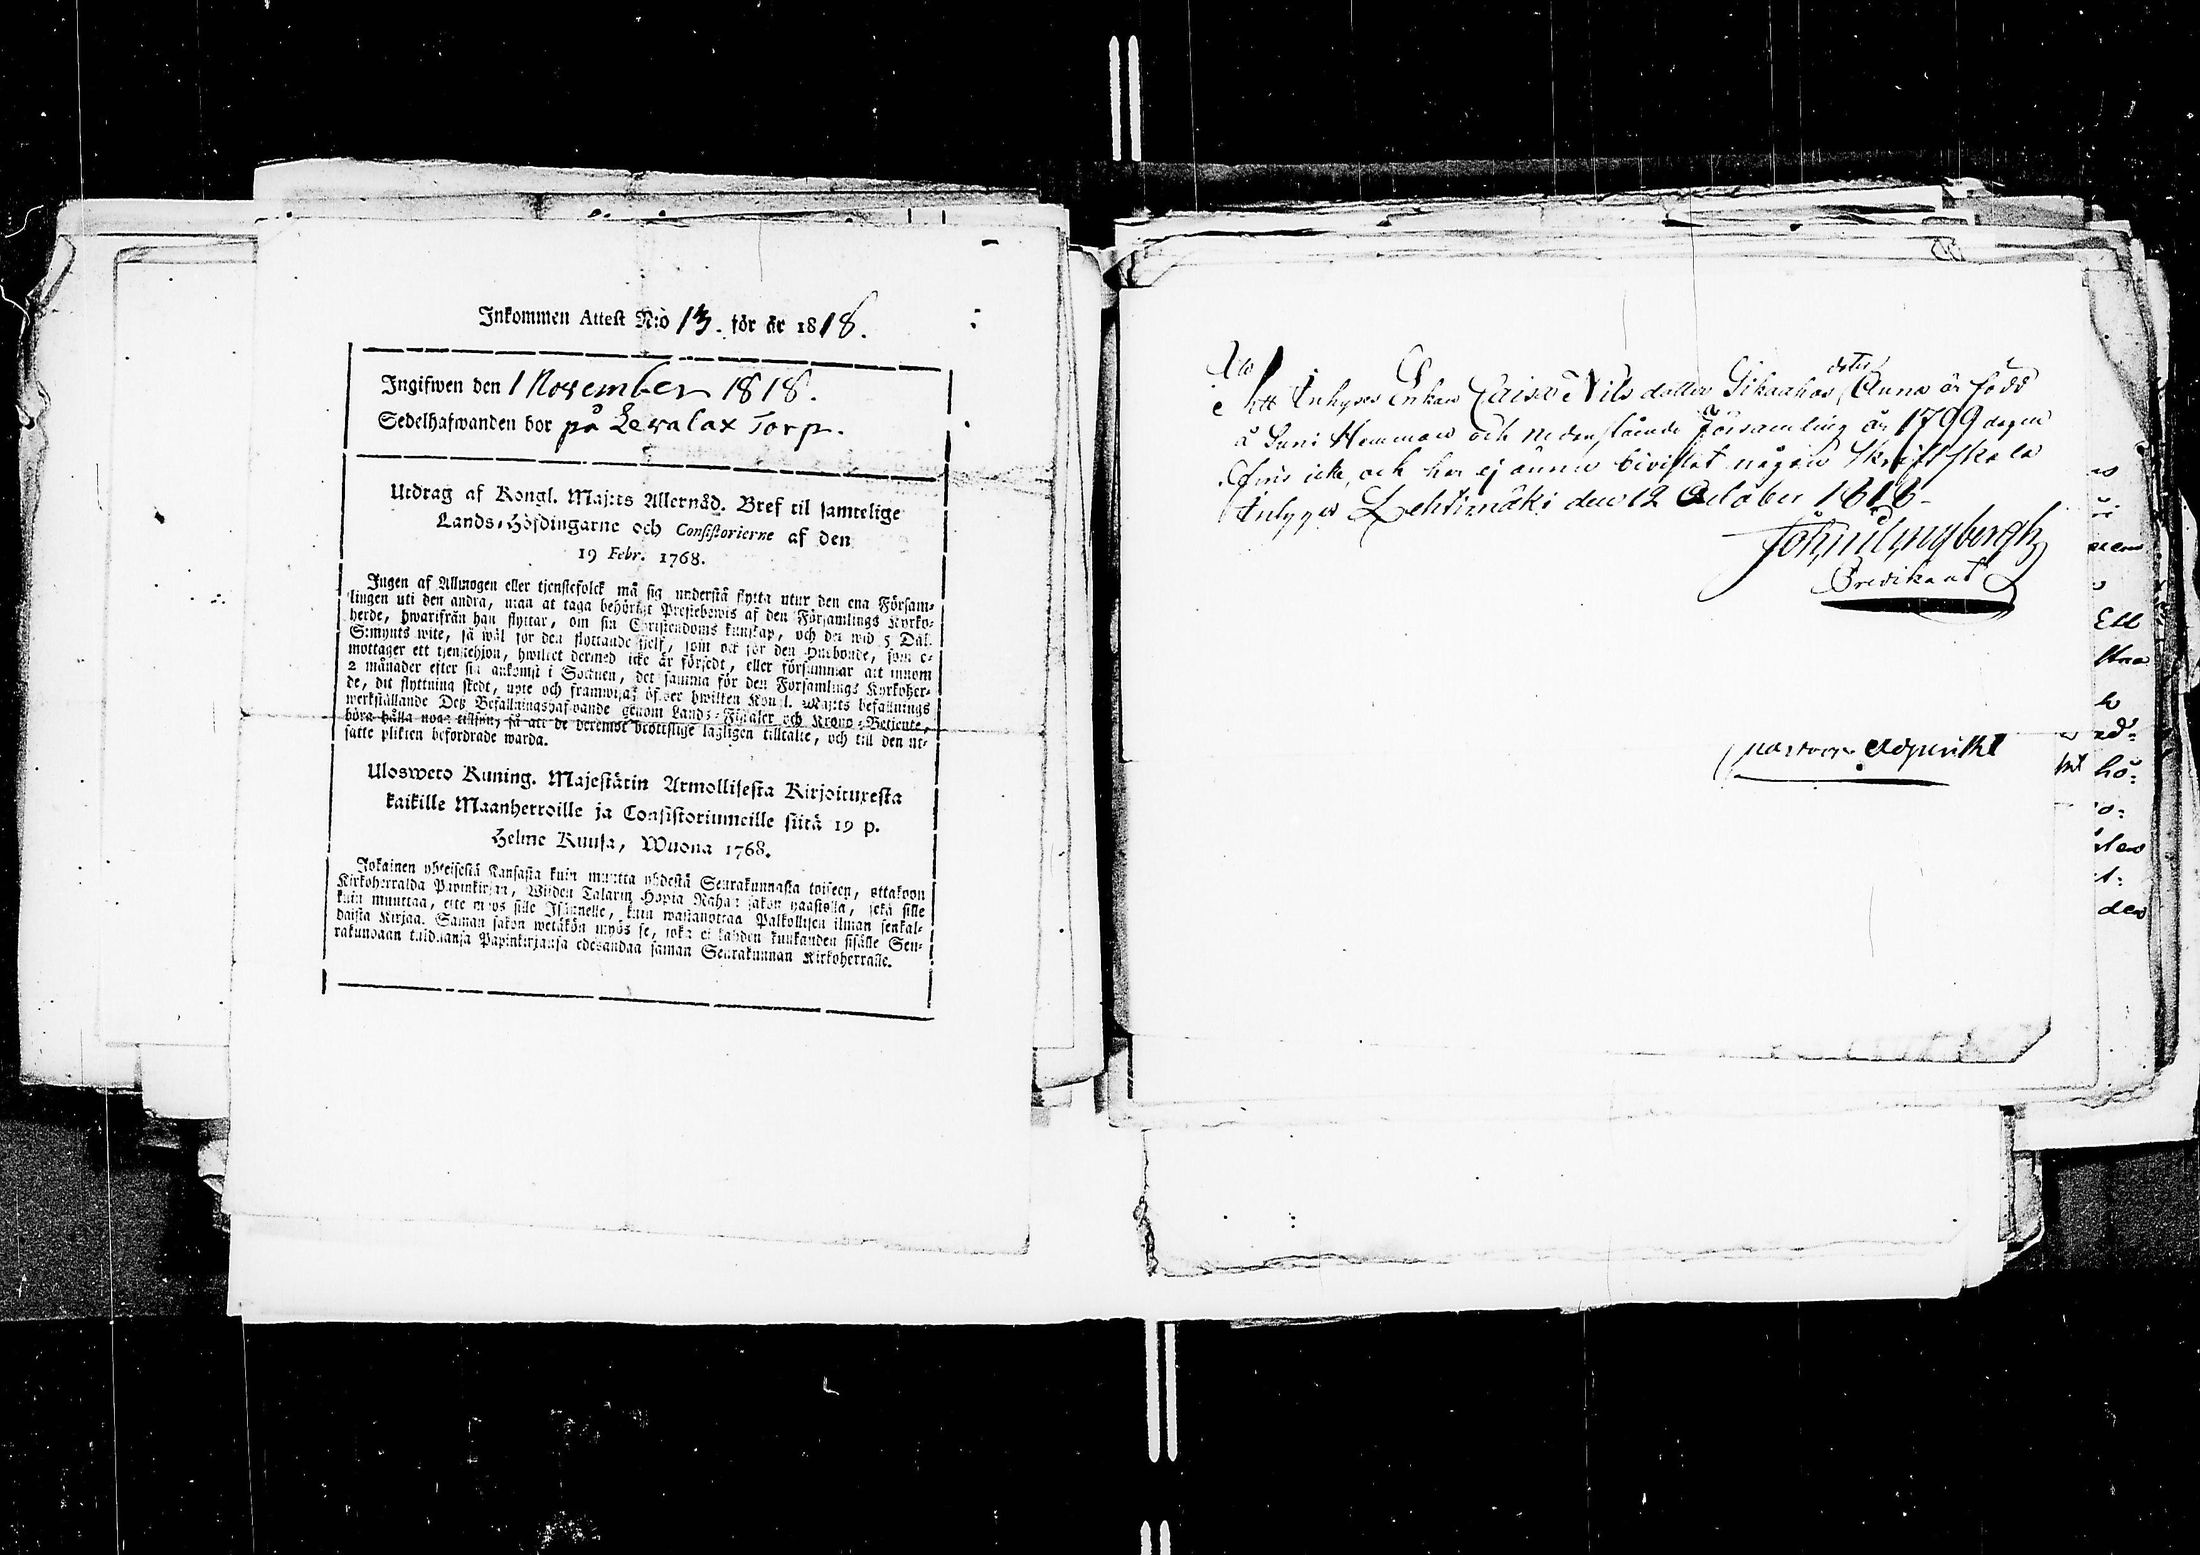 Inkommen Attest N:o 13. för år 1818.
Ingifwen den 1 November 1818.
Sedelhafwanden bor på Levalax Torp.
Utdrag af Kongl. Maj:ts Allernåd. Bref til samtelige
Lands-Höfdingarne och Consistorierne af den
19 Febr. 1768.
Ingen af Allmogen eller tjenstefolck må sig understå flytta utur den ena Försam-
lingen uti den andra, utan at taga behörigt Prestebewis af den Församlings Kyrko-
herde, hwarifrån han flyttar, om sin Christendoms kunskap, och det wid 5 Dal.
S:mynts wite, så wäl för den flyttande sjelf, som ock för den Husbonde, som e-
mottager ett tjenstehjon, hwilket dermed icke är försedt, eller försummar att innom
2 månader efter sin ankomst i Socknen, det samma för den Församlings Kyrkoher-
de, dit flyttning skedt, upte och framwisa; öfwer hwilken Kongl. Maj:ts befallnings
werkställande Deß Befallningshafwande genom Lands-Fiskaler och Krono-Betjente,
böra hålla noga tillsyn, så att de deremot brottslige lagligen tilltalte, och till den ut-
satte plikten befordrade warda.
Ulosweto Kuning. Majestätin Armollisesta Kirjoituxesta
kaikille Maanherroille ja Consistoriumeille siitä 19 p.
Helme Kuusa, Wuona 1768.
Jokainen yhteisestä Kansasta kuin muutta yhdestä Seurakunnasta toiseen, ottakoon
Kirkoherralda Papinkirjan, Wiiden Talarin Hopia Rahan sakon haastolla, sekä sille
kuin muuttaa, ette myös sille Isännelle, kuin wastanottaa Palkollisen ilman senkal-
daista Kirjaa. Saman sakon wetäkön myös se, joka ei kahden kuukauden sisälle Seu-
rakundaan tulduansa Papinkirjansa edesandaa saman Seurakunnan Kirkoherralle.
att Inhyses Enkan Caisa Nils dotters Sikaahos dotter Anna är född
å Suni Hemman och nedanstående Församling år 1799 dagen
fins icke, och har ej ännu bivistat någon Skriftskola
intygar Lehtimäki den 12 October 1818
Joh: Ljungbergh
Predikant
pastors Adjunkt